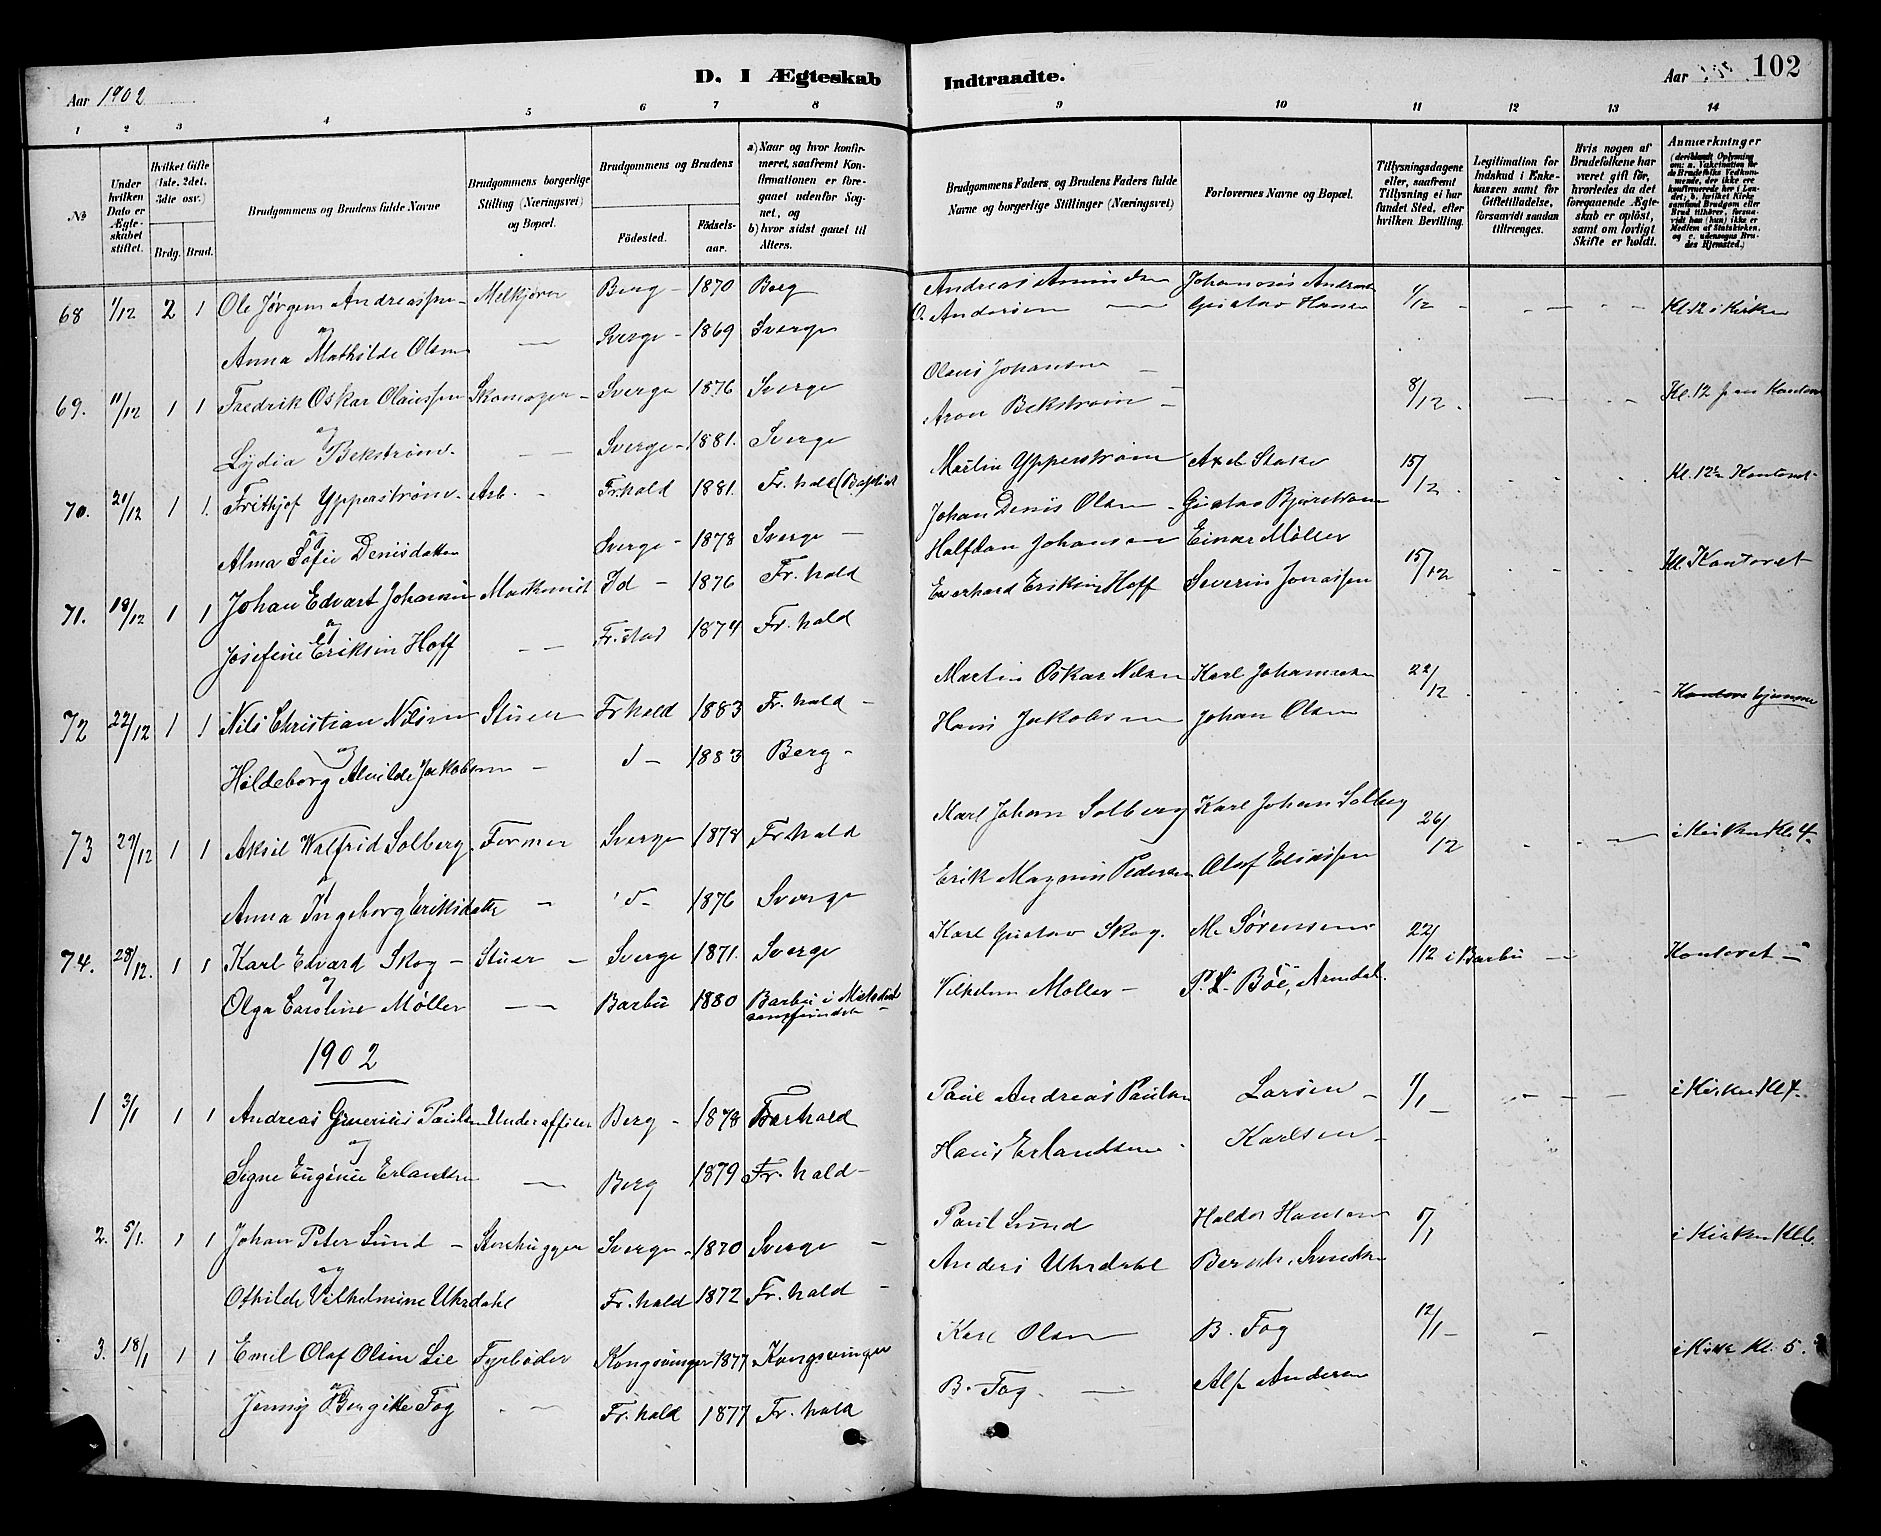 Aar 1902
D. I Ægteskab Indtraadte.
Aar 102
1 2 3 4 5 6 7 8 9 10 11 12 13 14
№
Under hvilken Dato er Ægteskabet stiftet.
Hvilket Gifte (1ste, 2det, 3die osv.)
Brdg. Brud.
Brudgommens og Brudens fulde Navne
Brudgommens borgerlige Stilling (Næringsvei) og Bopæl.
Brudgommens og Brudens
Fødested.
Fødsels-aar.
a) Naar og hvor konfirmeret, saafremt Konfirmationen er foregaaet udenfor Sognet, og
b) hvor sidst gaaet til Alters.
Brudgommens Faders, og Brudens Faders fulde Navne og borgerlige Stillinger (Næringsvei)
Forlovernes Navne og Bopæl.
Tillysningsdagene eller, saafremt Tillysning ei har fundet Sted, efter hvilken Bevilling.
Legitimation for Indskud i Enkekassen samt for Giftetilladelse, forsaavidt saadan tiltrænges.
Hvis nogen af Brudefolkene har været gift før, hvorledes da det foregaaende Ægteskab er opløst, samt om lovligt Skifte er holdt.
Anmærkninger (deriblandt Oplysning om: a. Vakcination for de Brudefolks Vedkommende, der ikke ere konfirmerede her i Landet, b. hvilket Kirkesamfund Brudgom eller Brud tilhører, forsaavidt han (hun) ikke er Medlem af Statskirken, og c. udensogns Brudes Hjemsted.)
68 1/12 2 1 Ole Jørgen Andreassen Melkjører Berg 1870 Berg Andreas Johannes Gustav Hansen 1/12 Kl. 12 i Kirken
og
Anna Mathilde Olsen Sverge 1869 Sverge O. Andersen
69. 11/12 1 1 Fredrik Oskar Olaussen Skomager Sverge 1876 Sverge Olaus Johansen 8/12 Kl. 12
og
Lydia Bekstrøm Sverge 1881. Sverge Aron Bekstrøm
70. 20/12 1 1. Frithjof Ypperstrøm Arb. Fr.hald 1881. Fr. hald (Baptist Martin Ypperstrøm Axel 15/12
og
Alma Sofie Denisdatter Sverge 1878 Sverge Johan Denis Olsen Gustav
71. 18/12 1 1 Johan Edvart Johansen Id 1876 Fr. hald Halfdan Johansen Einar Møller 15/12 Kl. Kontoret
og
Josefine Eriksen Hoff Fr.stad 1874 Fr. hald Everhard Eriksen Hoff Severin Jonassen
72 22/12 1 1 Nils Christian Nilsen Stuer Fr hald 1883 Fr. hald Martin Oskar Nilsen Karl Johannesen 22/12
og
Hildeborg Alvilde Jakobsen 1883 Berg Hans Jakobsen Johan Olsen
73 29/12 1 1 Aksil Walfrid Solberg Former Sverge 1878 Fr.hald Karl Johan Solberg Karl Johan Solberg 26/12 i Kirken Kl. 4
og
Anna Ingeborg Eriksdatter 1876 Sverge Erik Magnus Pedersen Olof Eliassen
74. 28/12. 1 1 Karl Edvard Skog Stuer Sverge 1871. Sverge Karl Gustav Skog. M. Sørensen 22/12 i Barbu Kontoret
og
Olga Caroline Møller Barbu 1880 Barbu i Metodist samfundet Vilhelm Møller P. L. Böe, Arendal.
1902
1 3/1 1 1 Andreas Paulsen Underofficer Berg 1878 Fr.hald Paul Andreas Paulsen Larsen 1/1 i Kirken Kl 7
og
Signe Eugenie Erlandsen Berg 1879 Fr. hald Hans Erlandsen Karlsen
2. 5/1. 1 1 Johan Peter Lund Stenhugger Sverge 1870 Sverge Paul Lund Haldor Hansen 5/1 i Kirken Kl 6.
og
Othilde Vilhelmine Uhrdahl Fr. hald 1872 Fr. hald Anders Uhrdahl
3. 18/1 1 1 Emil Olaf Olsen Lie Fyrbøder Kongsvinger 1877 Kongsvinger Karl Olsen B. Fog 12/1 i Kirke Kl. 5.
og
Jenny Birgitte Fog Fr. hald 1877 Fr. hald B. Fog Alf Andersen